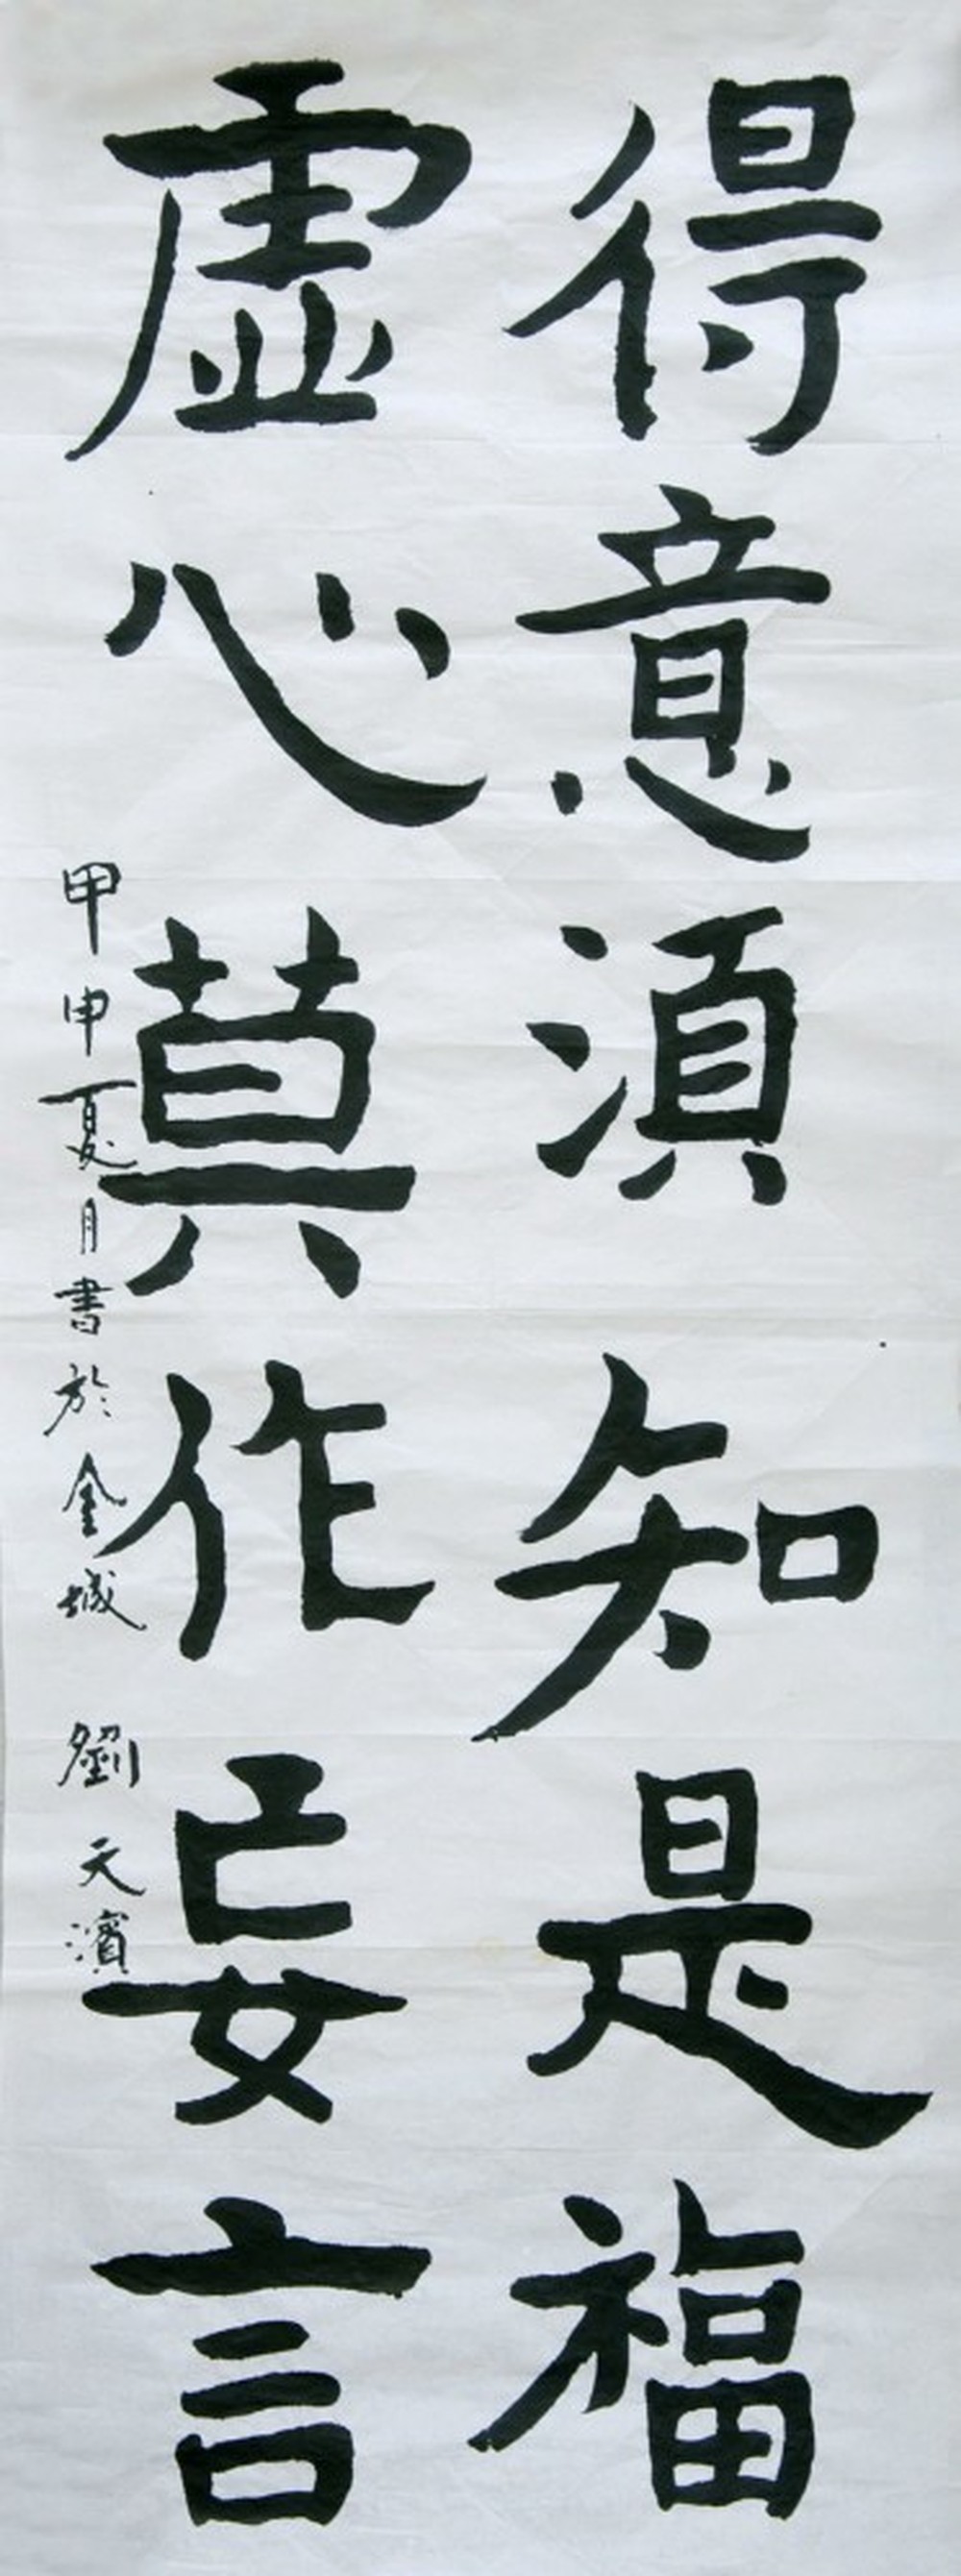 得意須知是福
虛心莫作妄言
甲申夏月書於金城 劉天濱